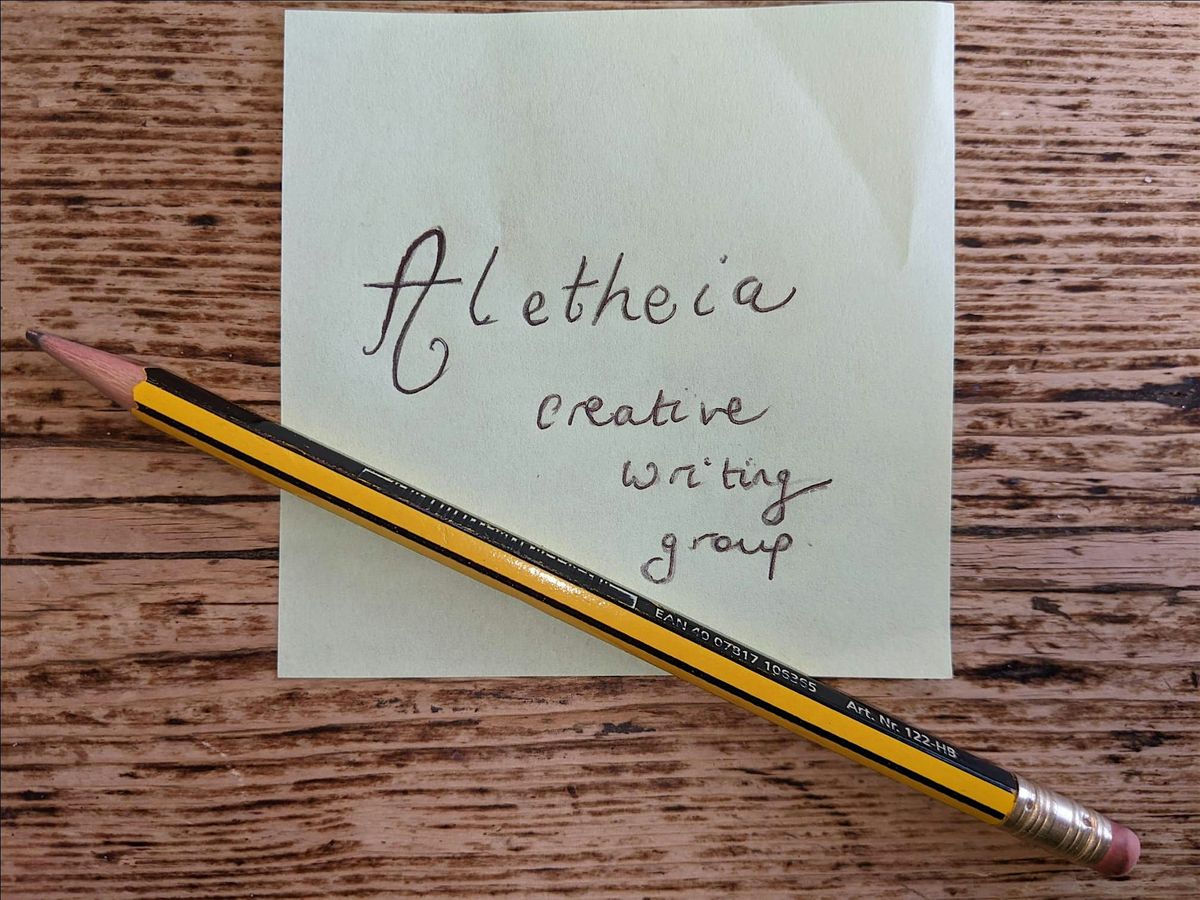 Aletheia
creative
writing
group
EAN 40 07817 106365
Art. Nr. 122-HB